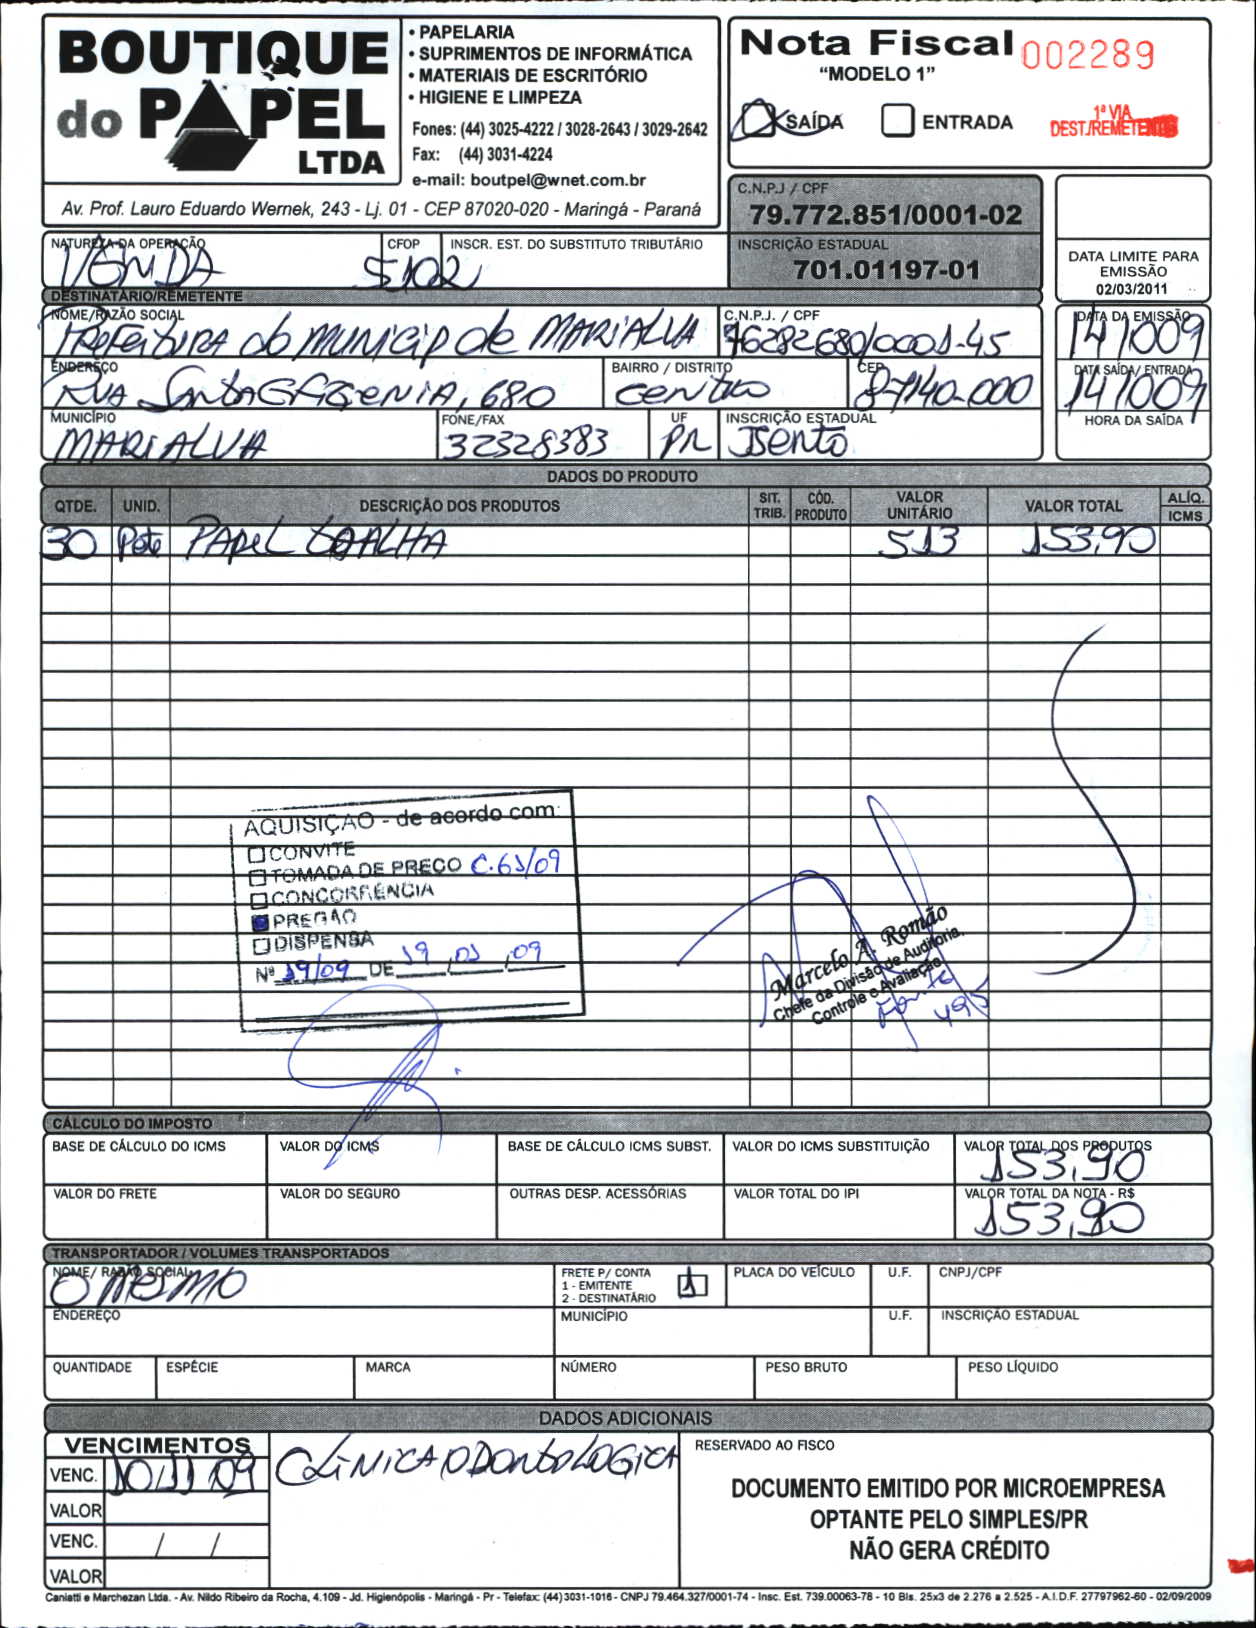 BOUTIQUE
do PAPEL
LTDA
• PAPELARIA
• SUPRIMENTOS DE INFORMÁTICA
• MATERIAIS DE ESCRITÓRIO
• HIGIENE E LIMPEZA
Fones: (44) 3025-4222 / 3028-2643 / 3029-2642
Fax: (44) 3031-4224
e-mail: boutpel@wnet.com.br
Av. Prof. Lauro Eduardo Wernek, 243 - Lj. 01 - CEP 87020-020 - Maringá - Paraná
Nota Fiscal 002289
“MODELO 1”
SAÍDA ENTRADA
1ª VIA
DEST./REMETENTE
C.N.P.J / CPF
79.772.851/0001-02
INSCRIÇÃO ESTADUAL
701.01197-01
DATA LIMITE PARA
EMISSÃO
02/03/2011
NATUREZA DA OPERAÇÃO CFOP INSCR. EST. DO SUBSTITUTO TRIBUTÁRIO
VENDA 5102
DESTINATÁRIO/REMETENTE
NOME/RAZÃO SOCIAL C.N.P.J. / CPF DATA DA EMISSÃO
Prefeitura do Municip de MARIALVA 76282680/0001-45 14/10/09
ENDEREÇO BAIRRO / DISTRITO CEP DATA SAÍDA/ ENTRADA
Rua Santa Efigenia, 680 centro 87140-000 14/10/09
MUNICÍPIO FONE/FAX UF INSCRIÇÃO ESTADUAL HORA DA SAÍDA
MARIALVA 32328383 PR Isento
DADOS DO PRODUTO
QTDE. UNID. DESCRIÇÃO DOS PRODUTOS SIT. TRIB. CÓD. PRODUTO VALOR UNITÁRIO VALOR TOTAL ALÍQ. ICMS
30 Pcte PAPEL TOALHA 513 153,90
AQUISIÇÃO - de acordo com:
CONVITE
TOMADA DE PREÇO C.61/09
CONCORRÊNCIA
PREGÃO
DISPENSA
Nº 19/09 DE 19, 01, 09
Marcelo A. Romão
Chefe da Divisão de Auditoria,
Controle e Avaliação
Fonte 495
CÁLCULO DO IMPOSTO
BASE DE CÁLCULO DO ICMS VALOR DO ICMS BASE DE CÁLCULO ICMS SUBST. VALOR DO ICMS SUBSTITUIÇÃO VALOR TOTAL DOS PRODUTOS
153,90
VALOR DO FRETE VALOR DO SEGURO OUTRAS DESP. ACESSÓRIAS VALOR TOTAL DO IPI VALOR TOTAL DA NOTA - R$
153,90
TRANSPORTADOR / VOLUMES TRANSPORTADOS
NOME/ RAZÃO SOCIAL FRETE P/ CONTA PLACA DO VEÍCULO U.F. CNPJ/CPF
O MESMO 1 - EMITENTE 1
2 - DESTINATÁRIO
ENDEREÇO MUNICÍPIO U.F. INSCRIÇÃO ESTADUAL
QUANTIDADE ESPÉCIE MARCA NÚMERO PESO BRUTO PESO LÍQUIDO
DADOS ADICIONAIS
VENCIMENTOS
VENC. 10/11/09
VALOR
VENC. / /
VALOR
CLINICA ODONTOLOGICA
RESERVADO AO FISCO
DOCUMENTO EMITIDO POR MICROEMPRESA
OPTANTE PELO SIMPLES/PR
NÃO GERA CRÉDITO
Caniatti e Marchezan Ltda. - Av. Nildo Ribeiro da Rocha, 4.109 - Jd. Higienópolis - Maringá - Pr - Telefax: (44) 3031-1016 - CNPJ 79.464.327/0001-74 - Insc. Est. 739.00063-78 - 10 Bls. 25x3 de 2.276 a 2.525 - A.I.D.F. 27797962-60 - 02/09/2009